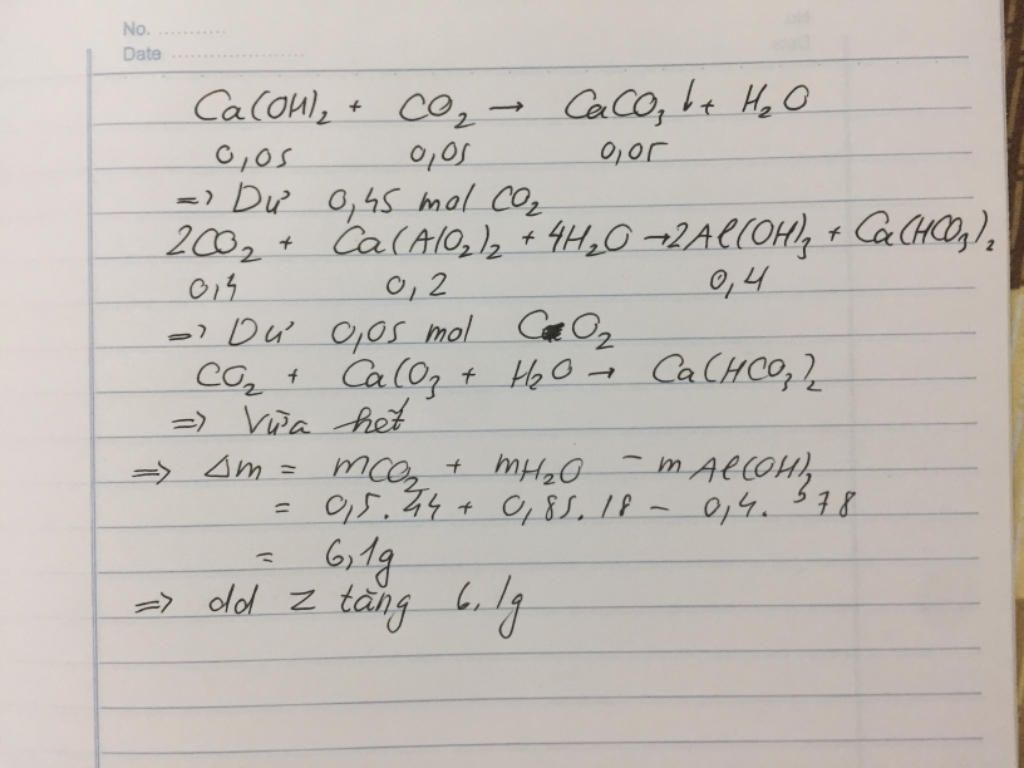 No. ...........
Date ......................
Ca(OH)₂ + CO₂ → CaCO₃↓ + H₂O
0,05 0,05 0,05
=> Dư 0,45 mol CO₂
2CO₂ + Ca(AlO₂)₂ + 4H₂O → 2Al(OH)₃ + Ca(HCO₃)₂
0,4 0,2 0,4
=> Dư 0,05 mol CO₂
CO₂ + CaCO₃ + H₂O → Ca(HCO₃)₂
=> Vừa hết
=> Δm = mCO₂ + mH₂O - mAl(OH)₃
= 0,5.44 + 0,85.18 - 0,4.78
= 6,1g
=> dd Z tăng 6,1g